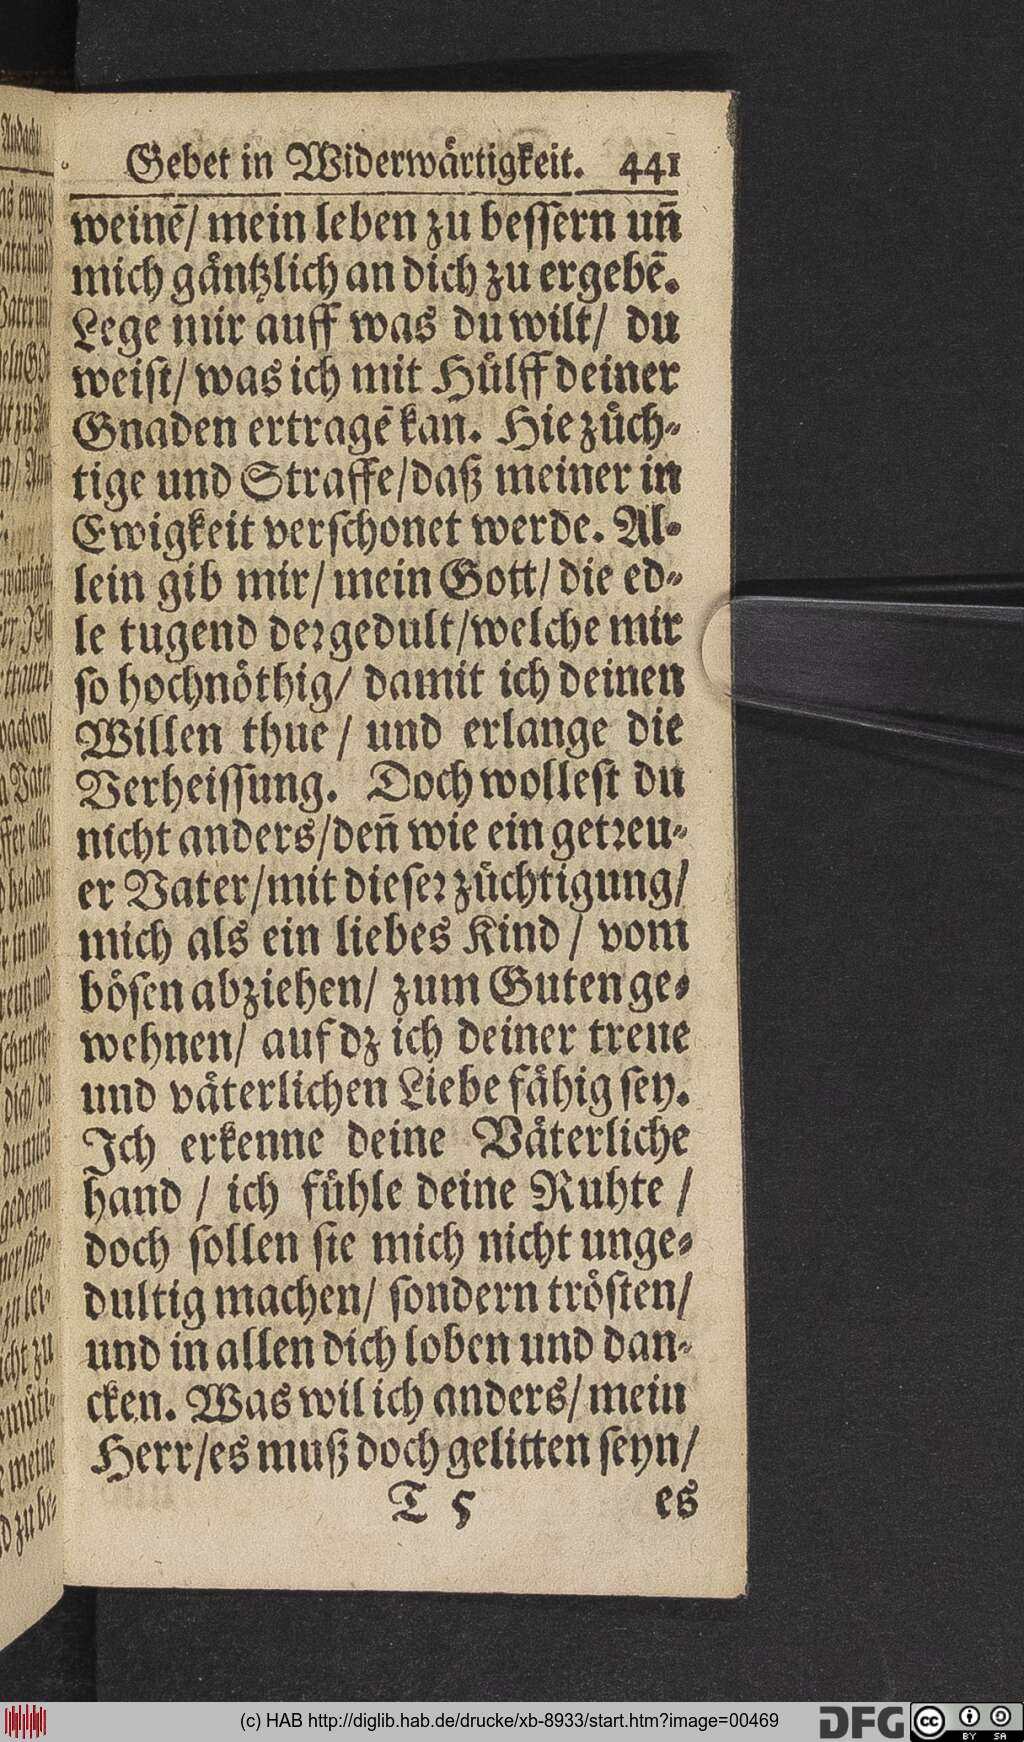 Gebet in Widerwårtigkeit. 441
weinē/ mein leben zu bessern uñ
mich gåntzlich an dich zu ergebē.
Lege mir auff was du wilt/ du
weist/ was ich mit Hůlff deiner
Gnaden ertragē kan. Hie zůch-
tige und Straffe/daß meiner in
Ewigkeit verschonet werde. Al-
lein gib mir/ mein Gott/ die ed-
le tugend der gedult/welche mir
so hochnöthig/ damit ich deinen
Willen thue / und erlange die
Verheissung. Doch wollest du
nicht anders/deñ wie ein getreu-
er Vater/mit dieser zůchtigung/
mich als ein liebes Kind / vom
bösen abziehen/ zum Guten ge-
wehnen/ auf dz ich deiner treue
und våterlichen Liebe fåhig sey.
Ich erkenne deine Våterliche
hand / ich fůhle deine Ruhte /
doch sollen sie mich nicht unge-
dultig machen/ sondern trösten/
und in allen dich loben und dan-
cken. Was wil ich anders/ mein
Herr/es muß doch gelitten seyn/
T 5 es
(c) HAB http://diglib.hab.de/drucke/xb-8933/start.htm?image=00469
DFG
cc BY SA